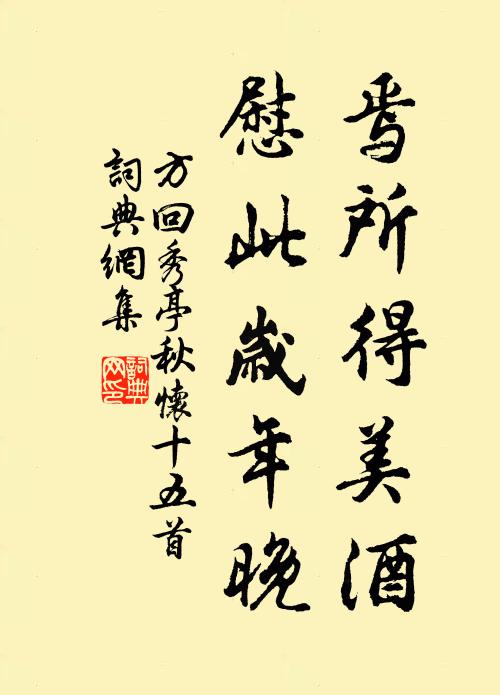 焉所得美酒
慰此歲年晚
方回秀亭秋懷十五首
詞典網集
詞典
网印